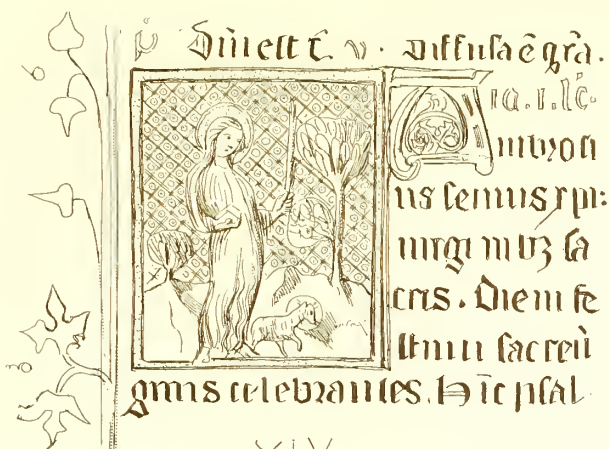 v . Diffusa ē gr̄a.
ia.i.lc̄.
Ambrosi
us seruus xpi:
uirginibꝫ sa
cris. Diem fe
stiuū sacre uir
ginis celebrantes. Hīc psal